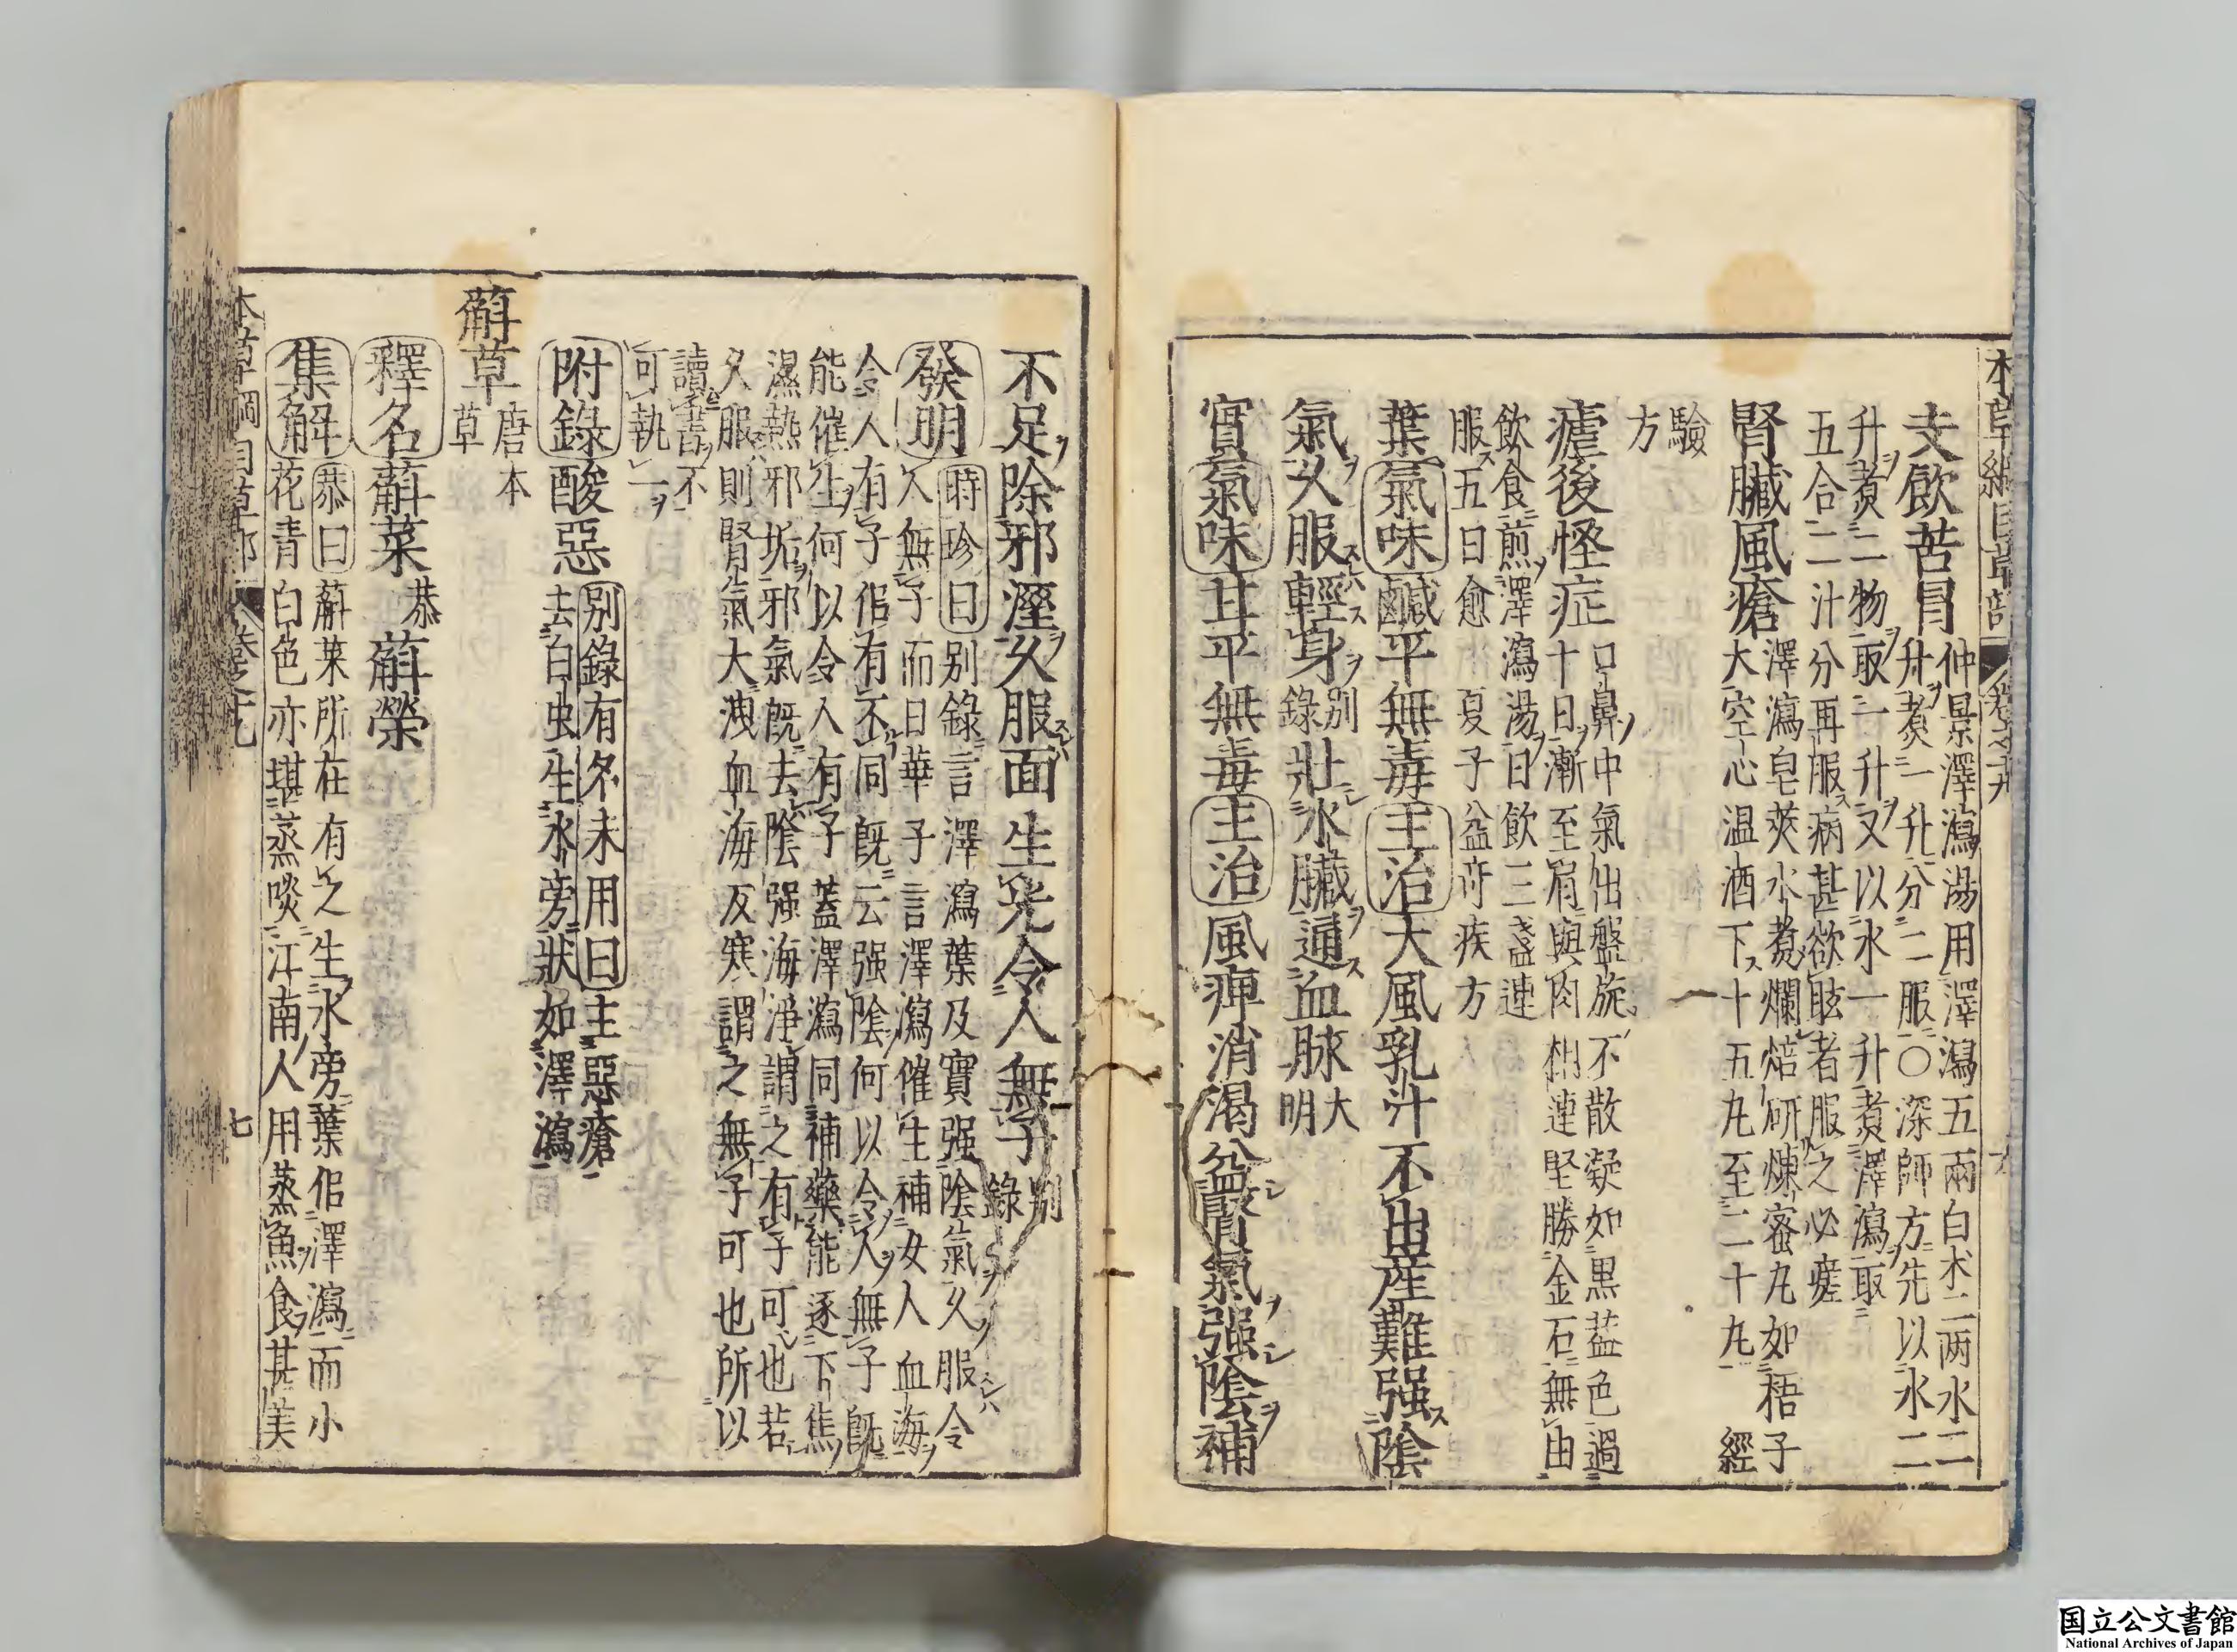 本草綱目草部 卷之十九 六
支飲苦冒 仲景澤瀉湯用澤瀉五兩白朮二两水二
升煮一升分二服〇深師方先以水二
升煮二物取一升又以水一升煮澤瀉取
五合二汁分再服病甚欲眩者服之必瘥
腎臟風瘡 澤瀉皂莢水煮爛焙研煉蜜丸如梧子
大空心温酒下十五丸至二十丸 經
驗
方
瘧後怪症 口鼻中氣出盤旋不散凝如黒葢色過
十日漸至肩與肉相連堅勝金石無由
飲食煎澤瀉湯日飲三盞連
服五日愈 夏子益奇疾方
葉 氣味 鹹平無毒 主治 大風乳汁不出産難强陰
氣久服輕身 别錄 壯水臟通血脉 大明
實 氣味 甘平無毒 主治 風痺消渴益腎氣强陰補
不足除邪溼久服面生光令人無子 别錄
發明 時珍曰 别錄言澤瀉葉及實强陰氣久服令
人無子而日華子言澤瀉催生補女人血海
令人有子佀有不同既云强陰何以令人無子既
能催生何以令人有子蓋澤瀉同補藥能逐下焦
濕熱邪垢邪氣既去陰强海淨謂之有子可也若
久服則腎氣大洩血海反寒謂之無子可也所以
讀書不
可執一
附錄 酸惡 别錄有名未用曰主惡瘡
去白虫生水旁狀如澤瀉
蔛草 唐本
草
釋名 蔛菜 恭 蔛榮
集解 恭曰 蔛菜所在有之生水旁葉佀澤瀉而小
花青白色亦堪蒸啖江南人用蒸魚食甚美
本草綱目草部 卷之十九 七
国立公文書館
National Archives of Japan